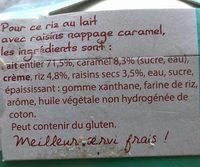 Pour ce riz au lait
avec raisins nappage caramel,
les ingrédients sont :
ait entier 71,5%, caramel 8,3% (sucre, eau),
crème, riz 4,8%, raisins secs 3,5%, eau, sucre,
épaississant : gomme xanthane, farine de riz,
arôme, huile végétale non hydrogénée de
coton.
Peut contenir du gluten.
Meilleur servi frais !